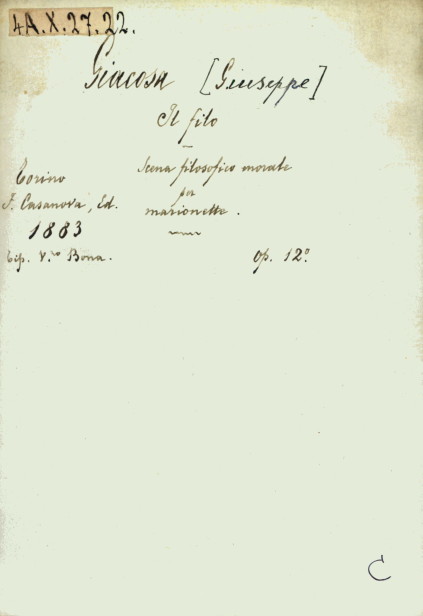 4A.X.27.22.
Giacosa [Giuseppe]
Il filo
Scena filosofico morale
per
marionette.
Torino
F. Casanova, Ed.
1883
Tip. V.zo Bona.
op. 12º.
C